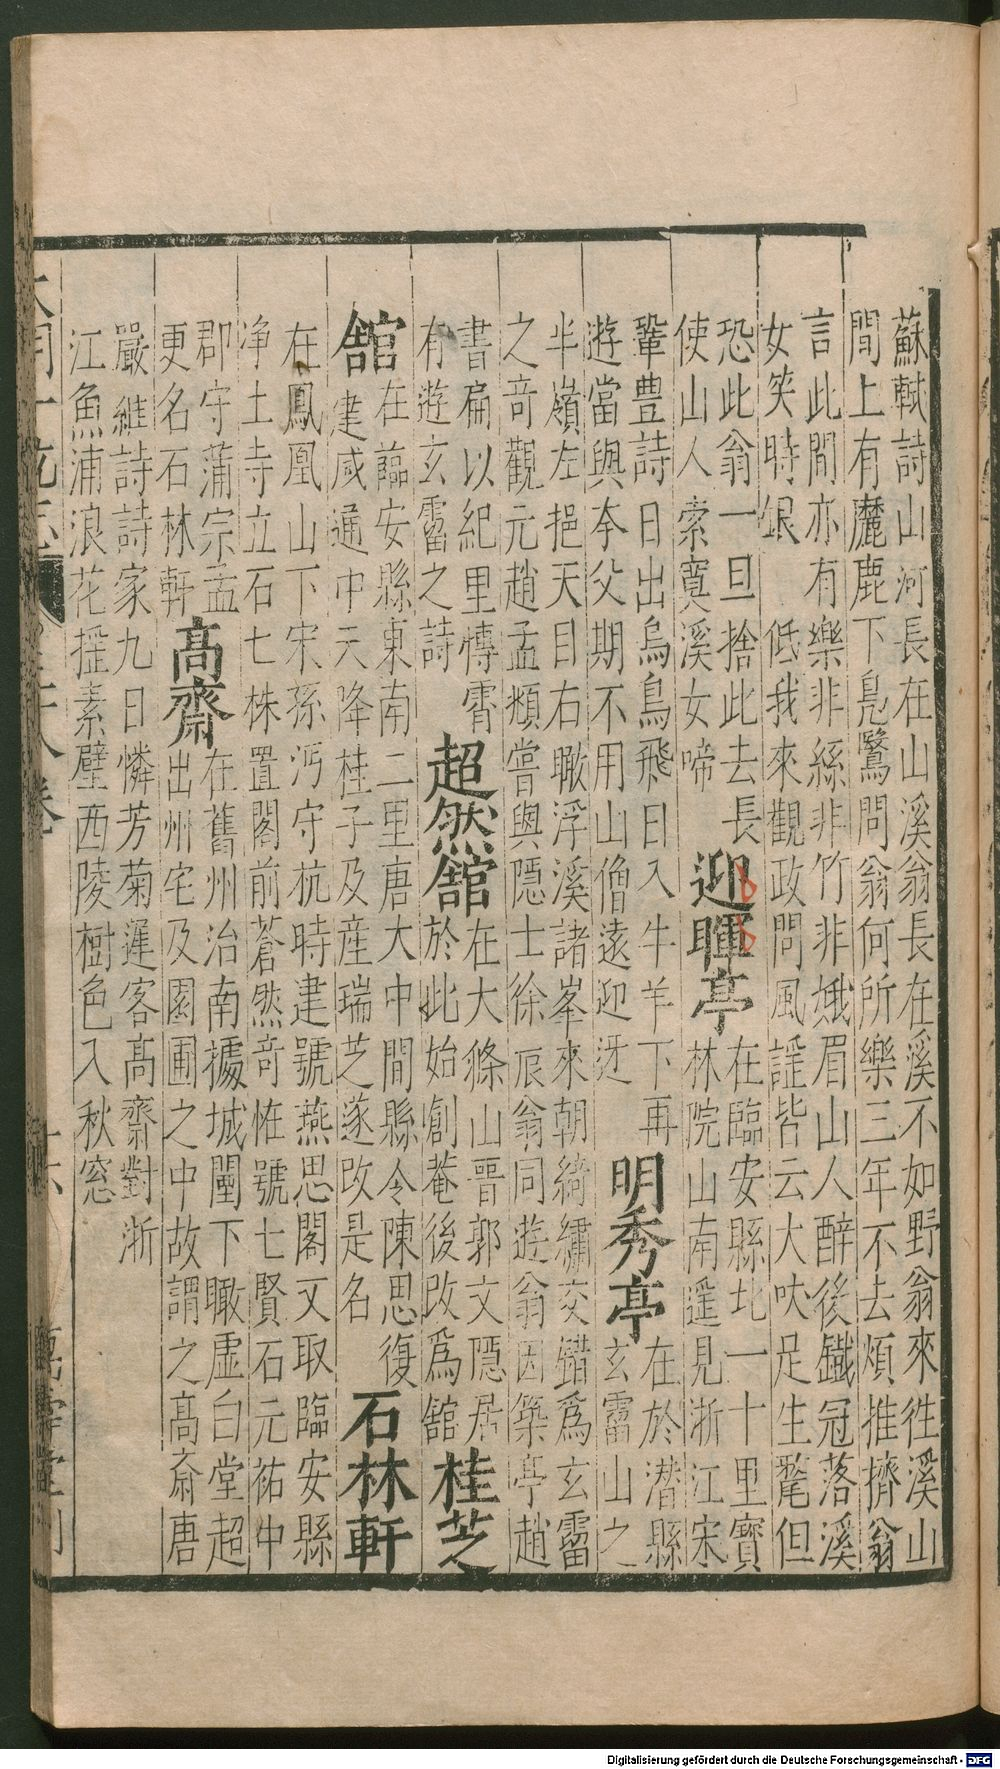 蘇軾詩山河長在山溪翁長在溪不如野翁來徃溪山
間上有麏鹿下鳬鷖問翁何所樂三年不去煩推擠翁
言此間亦有樂非絲非竹非娥眉山人醉後鐵冠落溪
女笑時銀 低我來觀政問風謡皆云大吠足生氂但
恐此翁一旦捨此去長
使山人索寞溪女啼
迎暉亭
在臨安縣北一十里寶
林院山南遥見浙江宋
鞏豊詩日出烏鳥飛日入牛羊下再
遊當與李父期不用山僧遠迎迓
明秀亭
在於潜縣
玄霤山之
半嶺左挹天目右瞰浮溪諸峯來朝綺繡交錯爲玄霤
之竒觀元趙孟頫嘗與隱士徐辰翁同遊翁因築亭趙
書扁以紀里慱霄
有遊玄霤之詩
超然舘
在大條山晋郭文隱居
於此始創菴後改爲舘
桂芝
舘
在臨安縣東南二里唐大中間縣令陳思復
建咸通中天降桂子及産瑞芝遂改是名
石林軒
在鳳凰山下宋孫沔守杭時建號燕思閣又取臨安縣
净土寺立石七株置閣前蒼然竒恠號七賢石元祐中
郡守蒲宗孟
更名石林軒
髙齋
在舊州治南據城闉下瞰虚白堂超
出州宅及園圃之中故謂之髙齋唐
嚴維詩詩家九日憐芳菊遲客髙齋對浙
江魚浦浪花揺素壁西陵樹色入秋窓
Digitalisierung gefördert durch die Deutsche Forschungsgemeinschaft - DFG